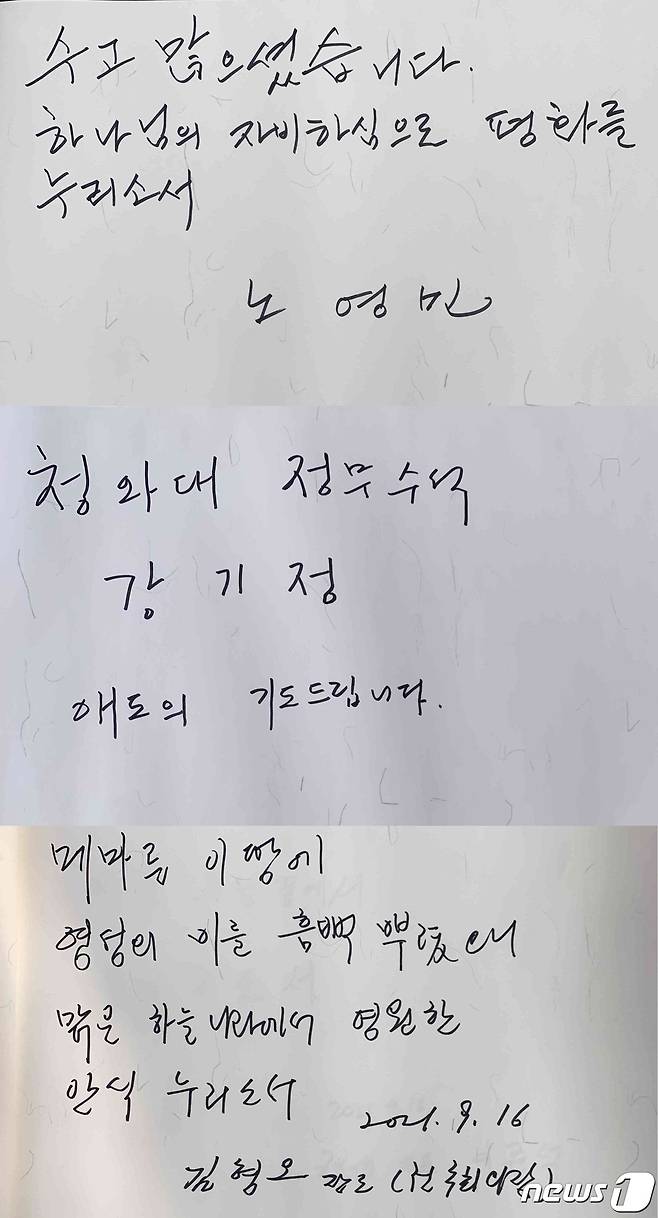 수고 많으셨습니다.
하나님의 자비하심으로 평화를
누리소서
노 영 민
청와대 정무수석
강 기 정
애도의 기도드립니다.
메마른 이 땅에
영성의 비를 흠뻑
맑은 하늘나라에서 영원한
안식 누리소서
2021. 9. 16
김형오 장로 (전 국회의장)
news1